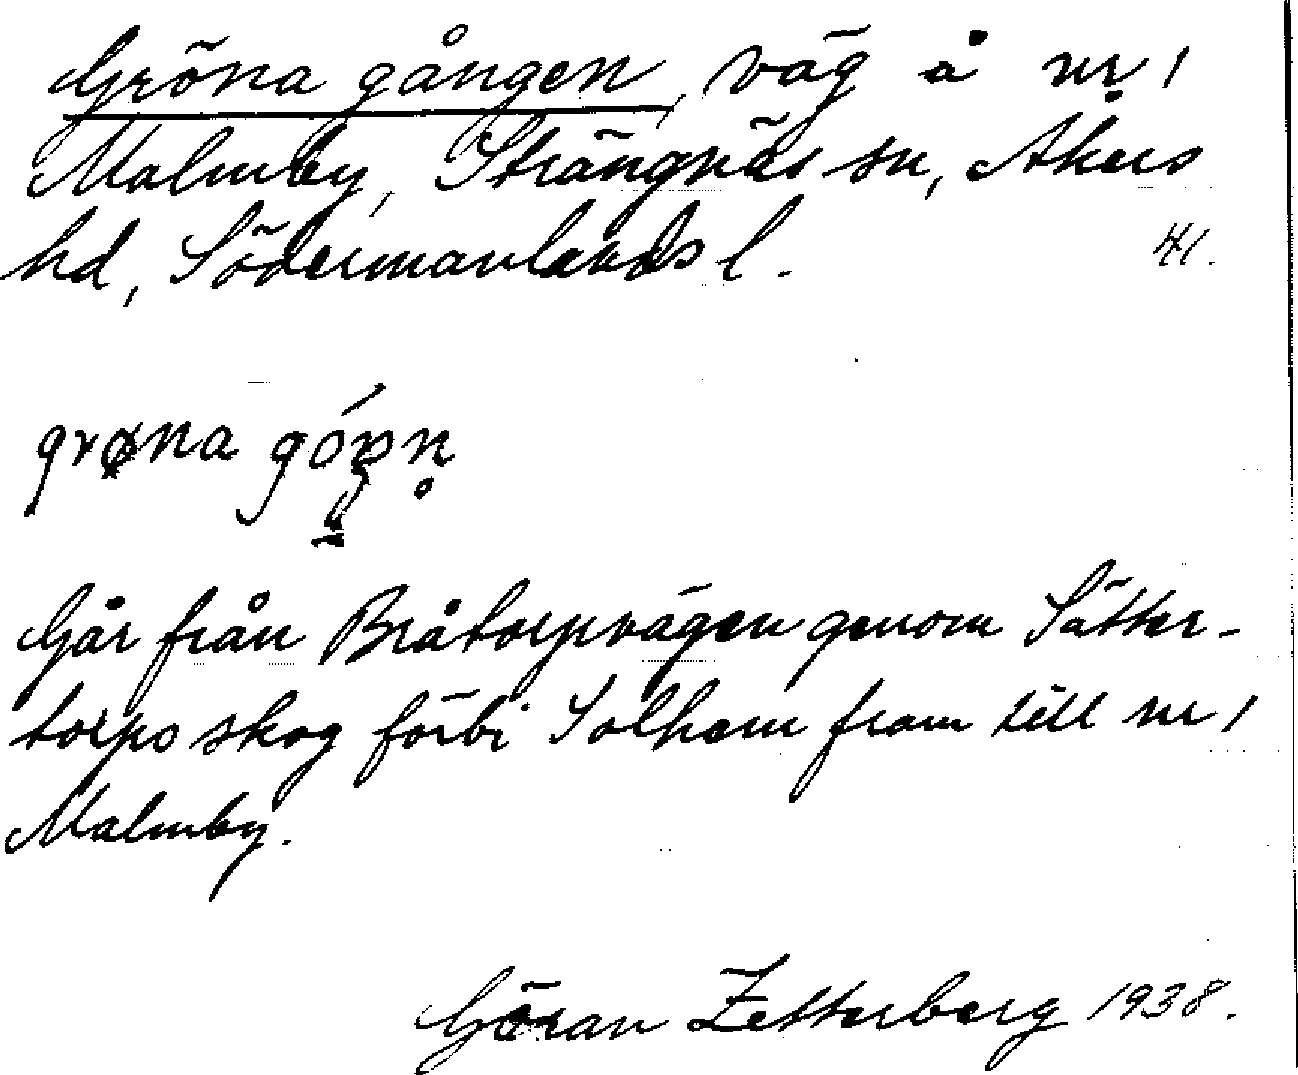 Gröna gången, väg å nr 1
Malmby, Strängnäs sn, Åkers
hd, Södermanlands l. 41.
grøna
Går från Bråtorpvägen genom Sätter-
torps skog förbi Solhem fram till nr 1
Malmby.
Göran Zetterberg 1938.